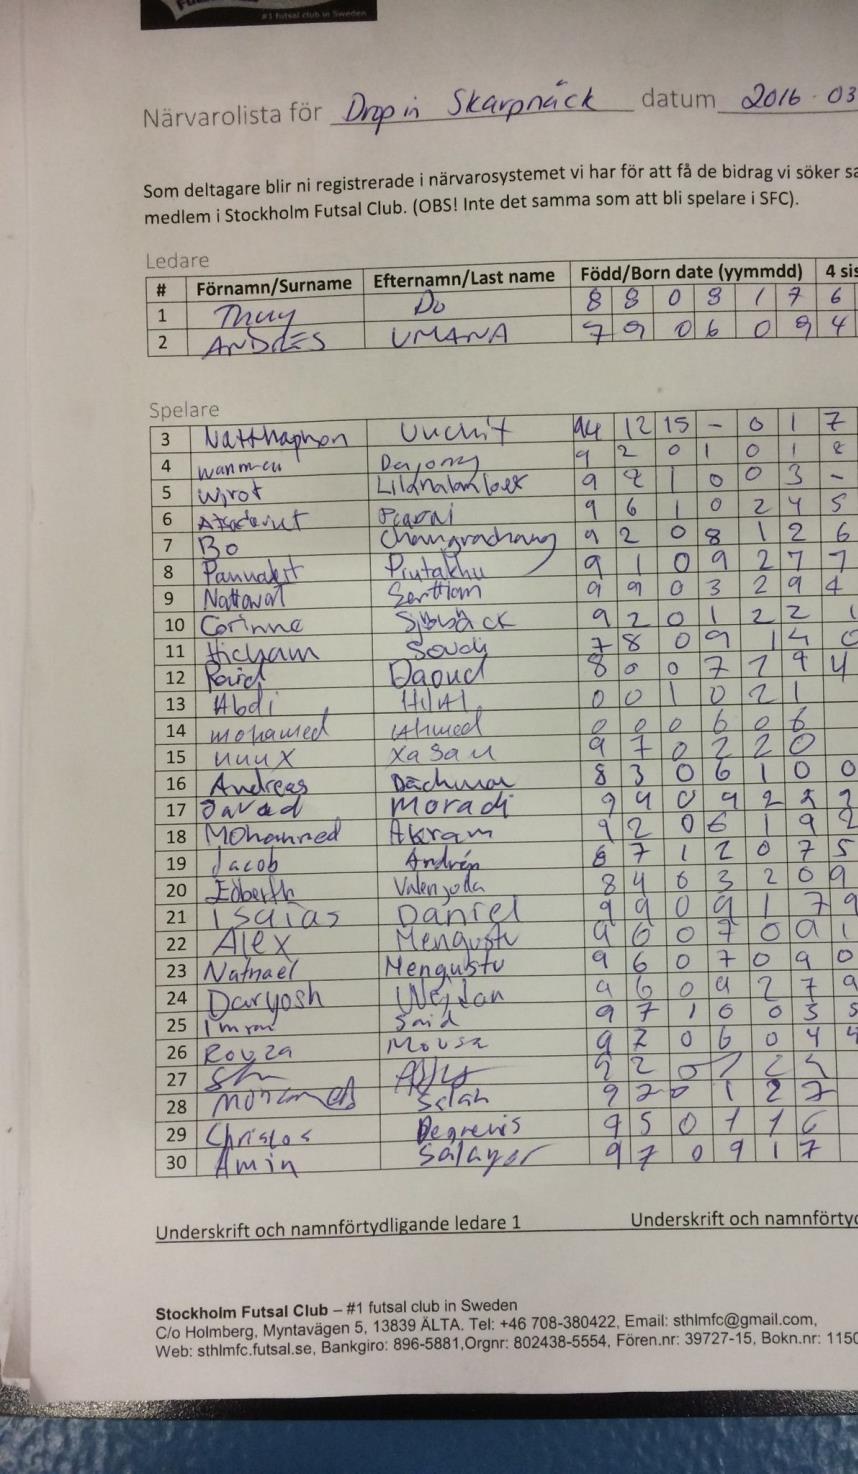 #1 futsal club in Sweden
Närvarolista för Drop in Skarpnäck datum 2016 03
Som deltagare blir ni registrerade i närvarosystemet vi har för att få de bidrag vi söker sa
medlem i Stockholm Futsal Club. (OBS! Inte det samma som att bli spelare i SFC).
Ledare
# Förnamn/Surname Efternamn/Last name Född/Born date (yymmdd) 4 sis
1 Thuy Do 8 8 0 9 1 7 6
2 ANDRES UMANA 7 9 0 6 0 9 4
Spelare
3 Natthaphon Unchit 94 12 15 - 0 1 7
4 9 2 0 1 0 1 8
5 Wirot 9 2 1 0 0 3 -
6 9 6 1 0 2 4 5
7 Bo Changrachang 9 2 0 8 1 2 6
8 Prutakhu 9 1 0 9 2 7 7
9 Nattawat 9 9 0 3 2 9 4
10 Corinne Sjöbäck 9 2 0 1 2 2 1
11 Hicham Soudi 7 8 0 9 1 4 0
12 Daoud 8 0 0 7 1 9 4
13 Abdi Hilal 0 0 1 0 2 1
14 mohamed Ahmed 0 0 0 6 0 6
15 nuux xasan 9 7 0 2 2 0
16 Andreas 8 3 0 6 1 0 0
17 Javad Moradi 9 4 0 9 2 2 2
18 Mohammed Akram 9 2 0 6 1 9 2
19 Jacob Andrén 8 7 1 2 0 7 5
20 Edberth 8 4 0 3 2 0 9
21 Isaias Daniel 9 9 0 9 1 7 9
22 Alex Mengustu 9 6 0 7 0 9 1
23 Natnael Mengustu 9 6 0 7 0 9 0
24 Daryosh Wejdan 9 6 0 9 2 7 9
25 Imran Said 9 7 1 0 0 3 5
26 Rouza Mousa 9 2 0 6 0 4 4
27
28 Mohamed Salah 9 2 0 1 2 7
29 Christos Degrenis 9 5 0 7 1 6
30 Amin Salayer 9 7 0 9 1 7
Underskrift och namnförtydligande ledare 1 Underskrift och namnförtyd
Stockholm Futsal Club – #1 futsal club in Sweden
C/o Holmberg, Myntavägen 5, 13839 ÄLTA. Tel: +46 708-380422, Email: sthlmfc@gmail.com,
Web: sthlmfc.futsal.se, Bankgiro: 896-5881,Orgnr: 802438-5554, Fören.nr: 39727-15, Bokn.nr: 1150